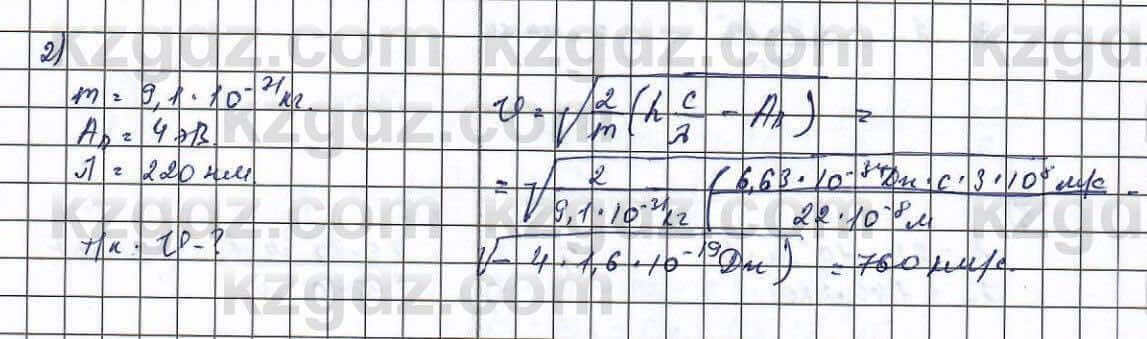 2)
m = 9,1·10⁻³¹кг.
Aв = 4 эВ.
λ = 220 нм.
Нк: υ - ?
υ = √(2/m (h c/λ - Aв)) =
= √(2/(9,1·10⁻³¹кг) ((6,63·10⁻³⁴Дж·с·3·10⁸ м/с)/(22·10⁻⁸м) -
√(- 4·1,6·10⁻¹⁹Дж) = 760 км/с.
kzgdz.com kzgdz.com kzgdz
kzgdz.com kzgdz.com kzgdz
kzgdz.com kzgdz.com kzgdz
kzgdz.com kzgdz.com